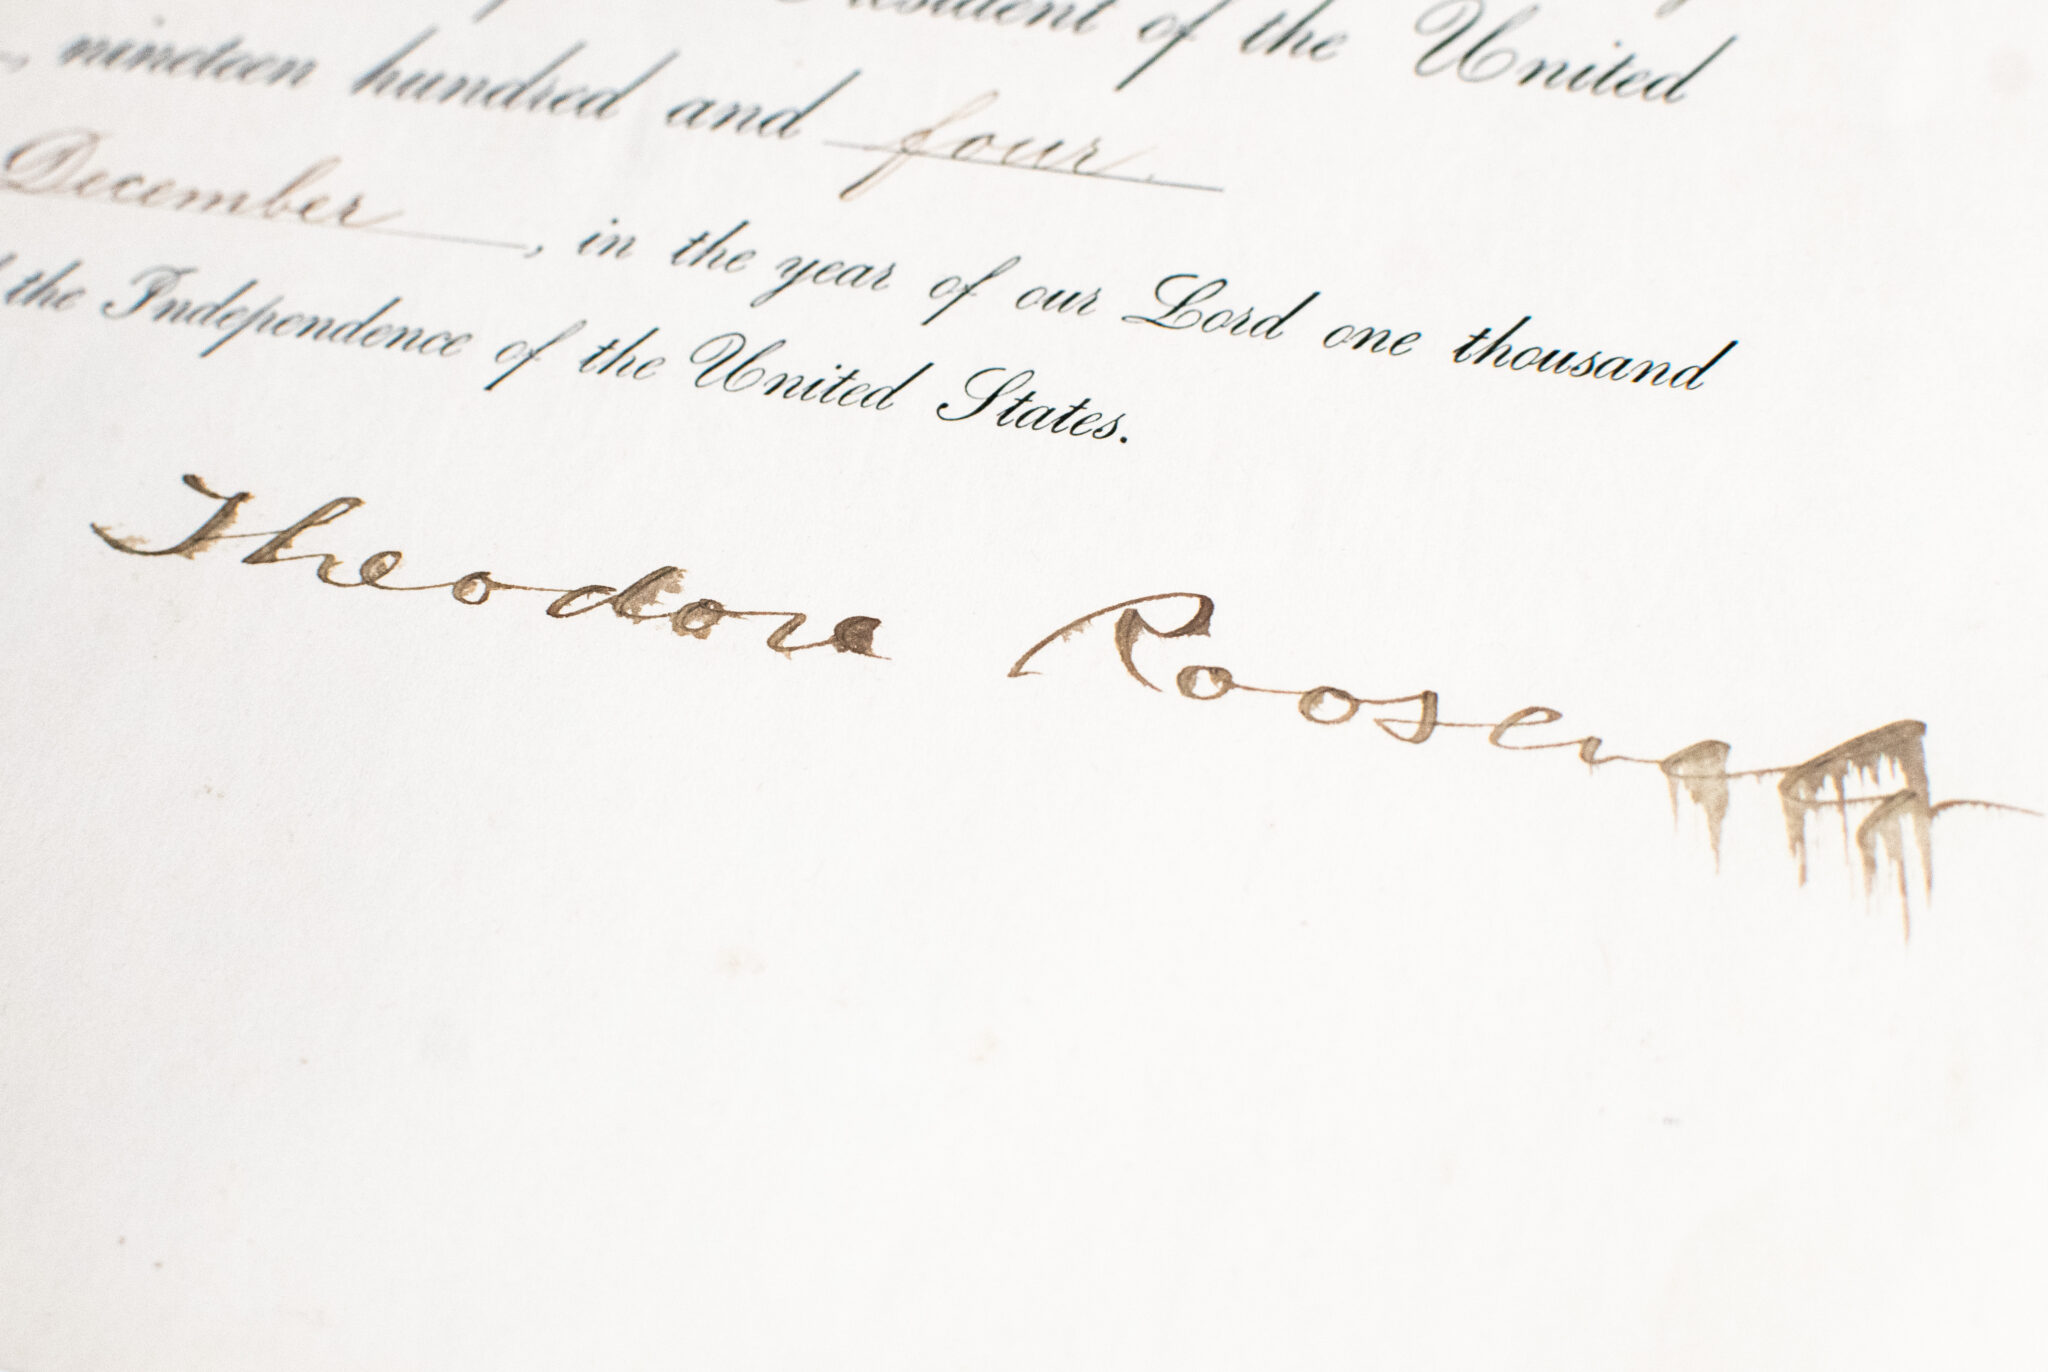 President of the United
, nineteen hundred and four.
December, in the year of our Lord one thousand
the Independence of the United States.
Theodore Roosevelt